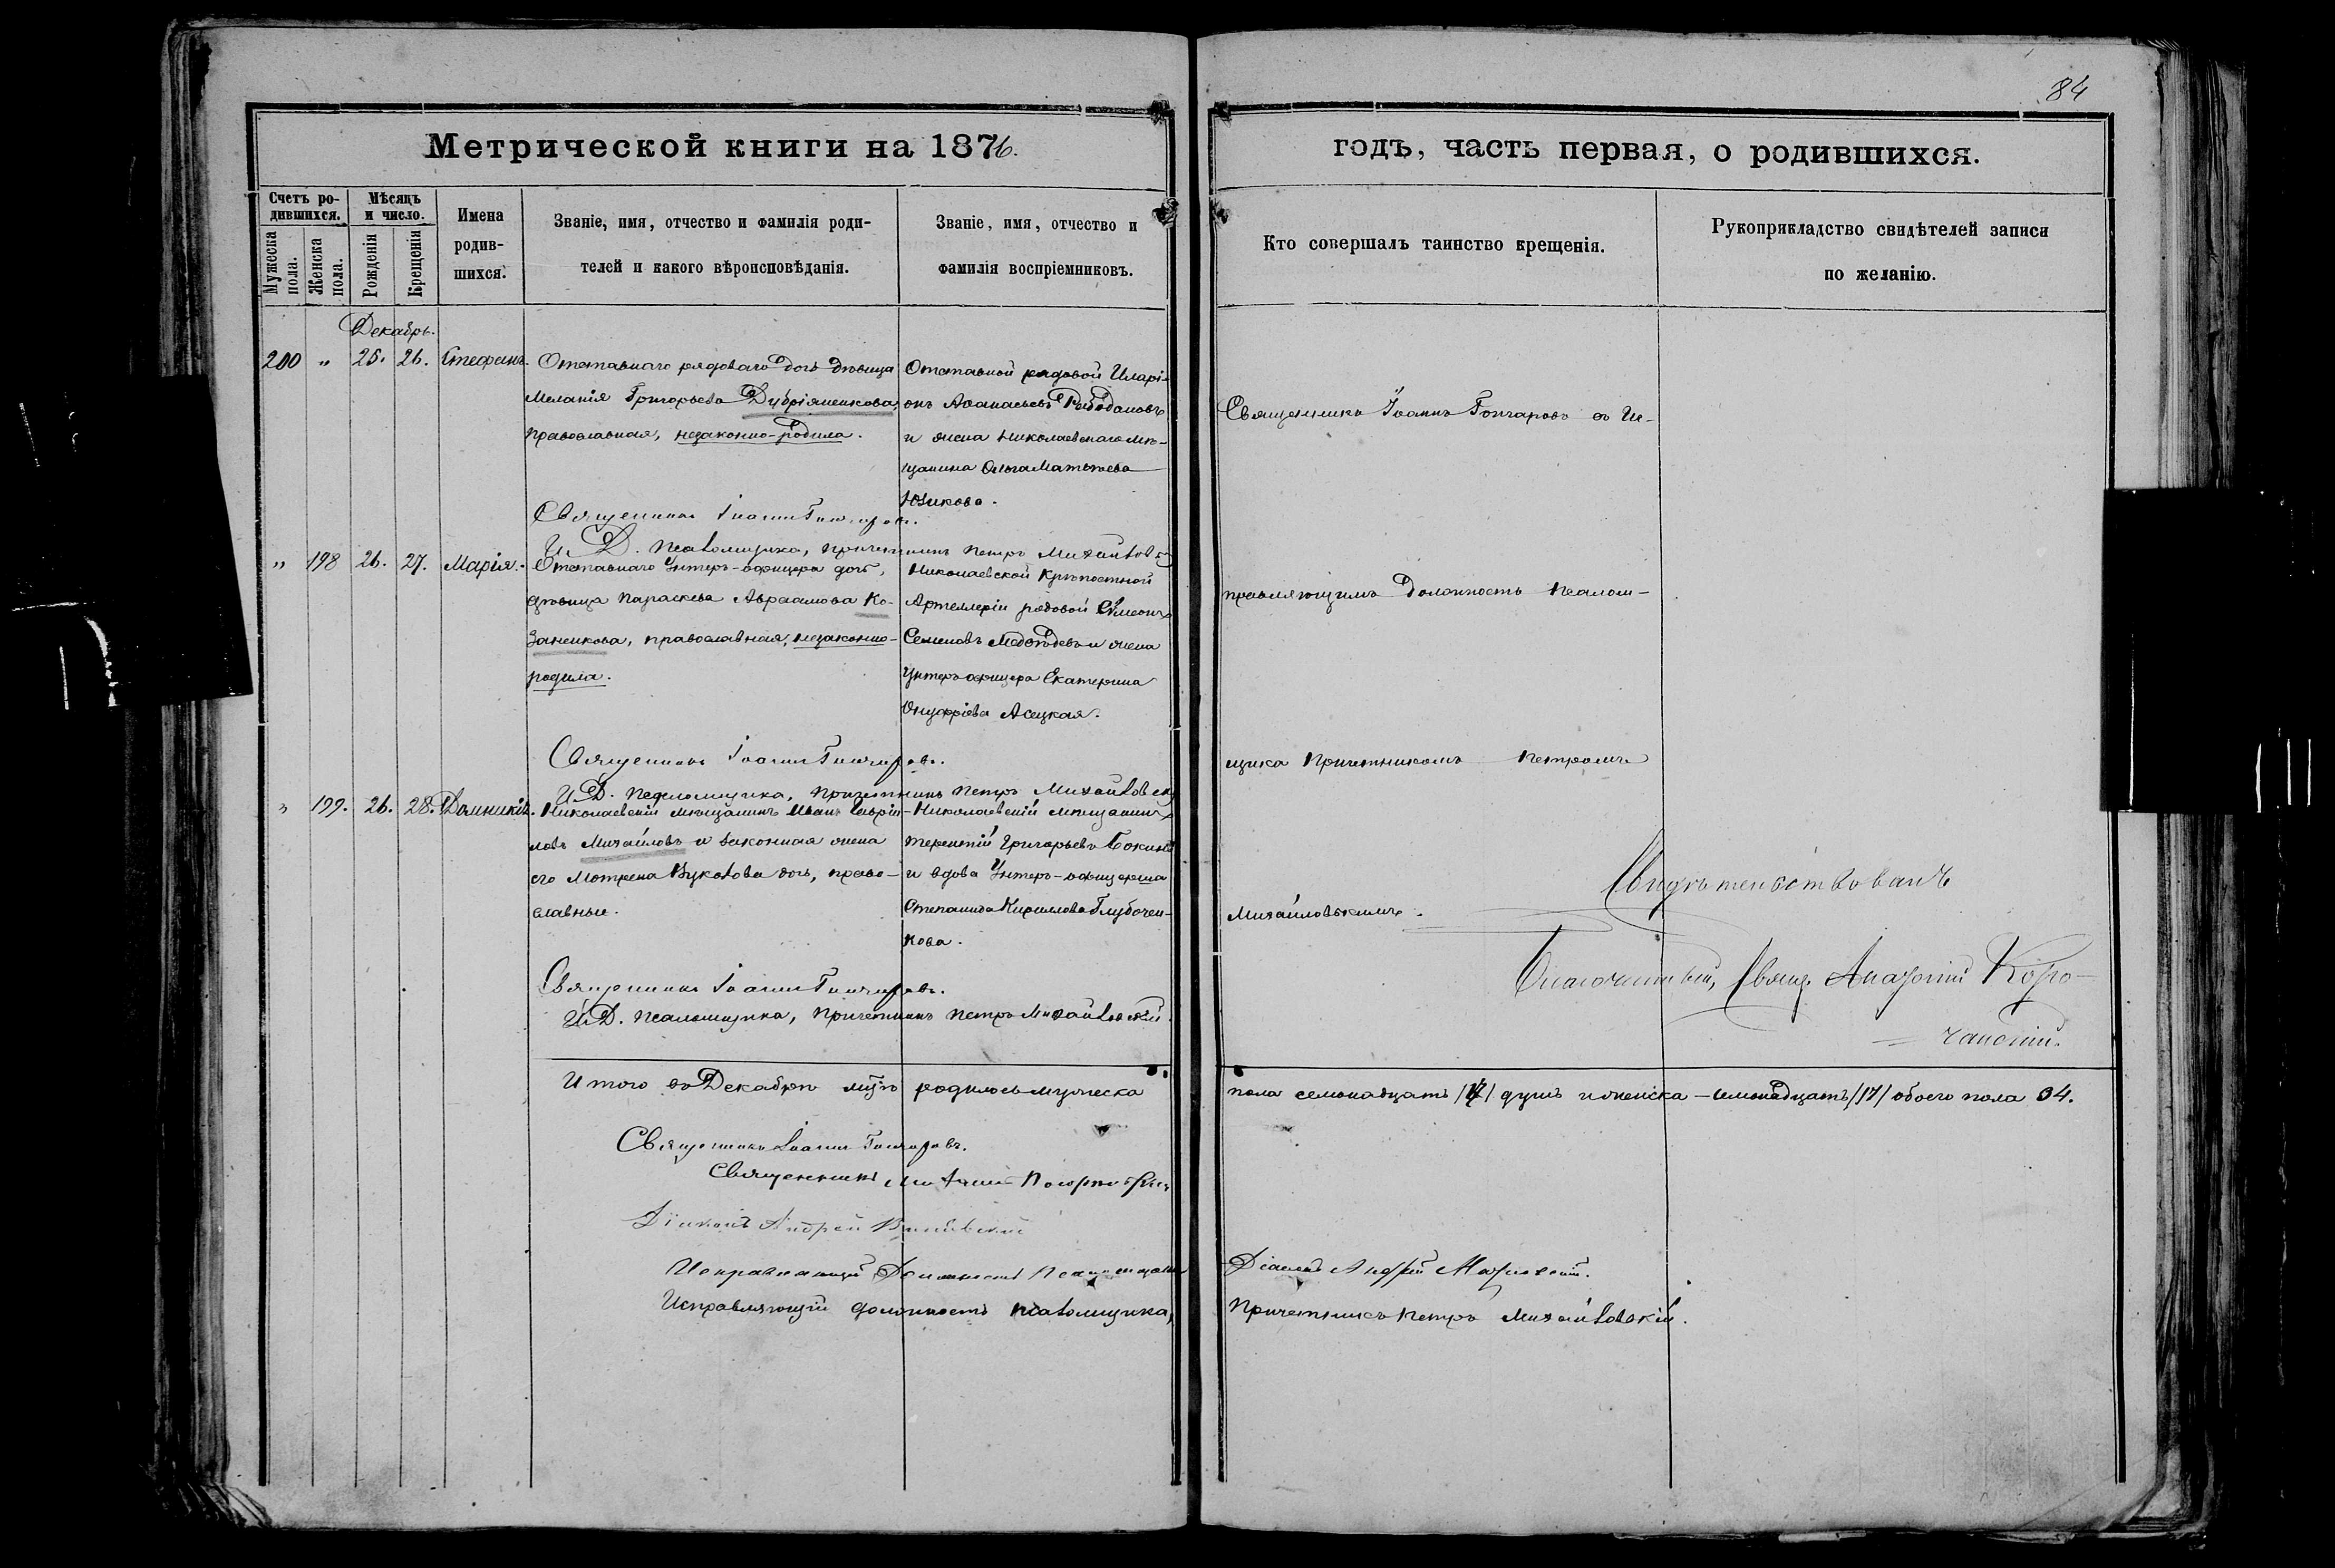 84
Метрической книги на 1876.
годъ, часть первая, о родившихся.
Счетъ ро-
дившихся.
Мужеска пола.
Женска пола.
Мѣсяцъ
и число.
Рожденія
Крещенія
Имена
родив-
шихся.
Званіе, имя, отчество и фамилія роди-
телей и какого вѣроисповѣданія.
Званіе, имя, отчество и
фамилія воспріемниковъ.
Кто совершалъ таинство крещенія.
Рукоприкладство свидѣтелей записи
по желанію.
Декабрь.
200 " 25. 26. Стефанъ.
Отставнаго рядоваго дочь дѣвица
Меланія Григорьева
православная, незаконно-родила.
Отставной рядовой Иларі-
онъ Аѳанасьевъ
и жена Николаевскаго мѣ-
щанина Ольга Матвѣева
Священникъ Іоаннъ Гончаровъ.
И. Д. псаломщика, причетникъ Петръ Михайловскій
" 198 26. 27. Марія.
Отставнаго Унтеръ-офицера дочь,
дѣвица Параскева Авраамова Ко-
занчикова, православная, незаконно-
родила.
Николаевской Крѣпостной
Артиллеріи рядовой Симеонъ
Семеновъ и жена
Унтеръ-офицера Екатерина
Онуфріева
Священникъ Іоаннъ Гончаровъ.
И. Д. псаломщика, причетникъ Петръ Михайловскій
" 199. 26. 28. Домникія.
Николаевскій мѣщанинъ Иванъ Гаврі-
ловъ Михайловъ и законная жена
его Матрена Вуколова дочь, право-
славные.
Николаевскій мѣщанинъ
Терентій Григорьевъ
и вдова Унтеръ-офицерша
Степанида Кирилова Глубочен-
кова.
Священникъ Іоаннъ Гончаровъ.
И. Д. псаломщика, причетникъ Петръ Михайловскій.
Священникъ Іоаннъ Гончаровъ съ Ис-
правляющимъ должность псалом-
щика Причетникомъ Петромъ
Михайловскимъ.
Свидѣтельствовалъ
Благочинный, Свящ. Анатолій Коро-
чанскій.
Итого въ Декабрѣ мцѣ родилось мужеска
пола семнадцать /17/ душъ и женска – семнадцать /17/ обоего пола 34.
Священникъ Іоаннъ Гончаровъ.
Священникъ
Діаконъ Андрей
Исправляющій Должность Псаломщика
Діаконъ Андрей
Исправляющій должность псаломщика,
Причетникъ Петръ Михайловскій.